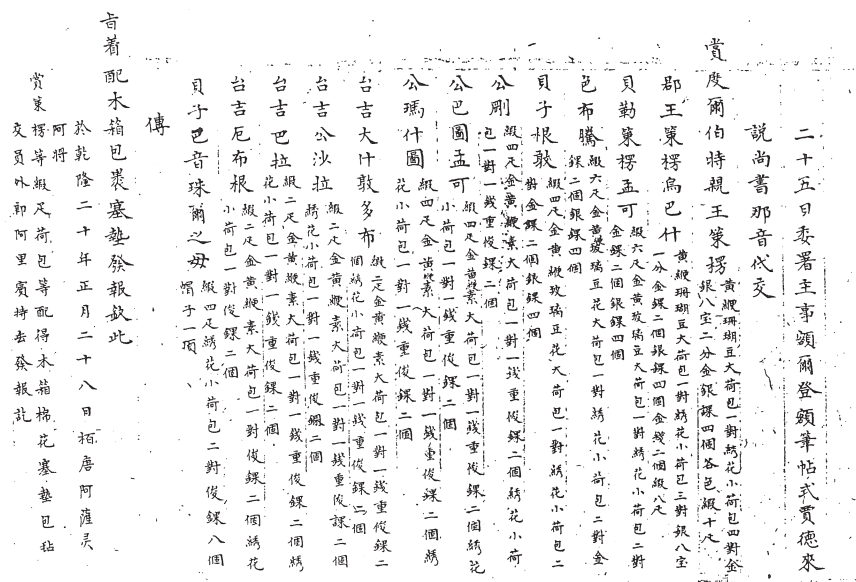 二十五日委署主事額爾登額筆帖式賈德來
說尚書那音代交
賞度爾伯特親王策楞 黃鞭珊瑚豆大荷包一對綉花小荷包四對金
銀八宝二分金銀錁四個各色緞十疋
郡王策楞烏巴什 黃鞭珊瑚豆大荷包一對綉花小荷包三對銀八宝
一分金錁二個銀錁四個金錢二個緞八疋
貝勒策楞孟可 緞六疋金黃玻璃豆大荷包一對綉花小荷包二對
金錁二個銀錁四個
色布騰 緞六疋金黃鞭玻璃豆花大荷包一對綉花小荷包二對金
錁二個銀錁四個
貝子根敦 緞四疋金黃鞭玻璃豆花大荷包一對綉花小荷包二
對金錁二個銀錁四個
公剛 緞四疋金黃鞭素大荷包一對一錢重俊錁二個綉花小荷
包一對一錢重俊錁二個
公巴圖孟可 緞四疋金黃鞭素大荷包一對一錢重俊錁二個綉花
小荷包一對一錢重俊錁二個
公瑪什圖 緞四疋金黃鞭素大荷包一對一錢重俊錁二個綉
花小荷包一對一錢重俊錁二個
台吉大什敦多布 緞二疋金黃鞭素大荷包一對一錢重俊錁二
個綉花小荷包一對一錢重俊錁二個
台吉公沙拉 緞二疋金黃鞭素大荷包一對一錢重俊錁二個
綉花小荷包一對一錢重俊錁二個
台吉巴拉 緞二疋金黃鞭素大荷包一對一錢重俊錁二個綉
花小荷包一對一錢重俊錁二個
台吉厄布根 緞二疋金黃鞭素大荷包一對俊錁二個綉花
小荷包一對俊錁二個
貝子巴音珠爾之母 緞四疋綉花小荷包二對俊錁八個
帽子一項
傳
旨着配木箱包裹塞墊發報欽此
於乾隆二十年正月二十八日栢唐阿薩灵
阿將
賞策楞等緞疋荷包等配得木箱棉花塞墊包毡
交員外郎阿里賓持去發報訖